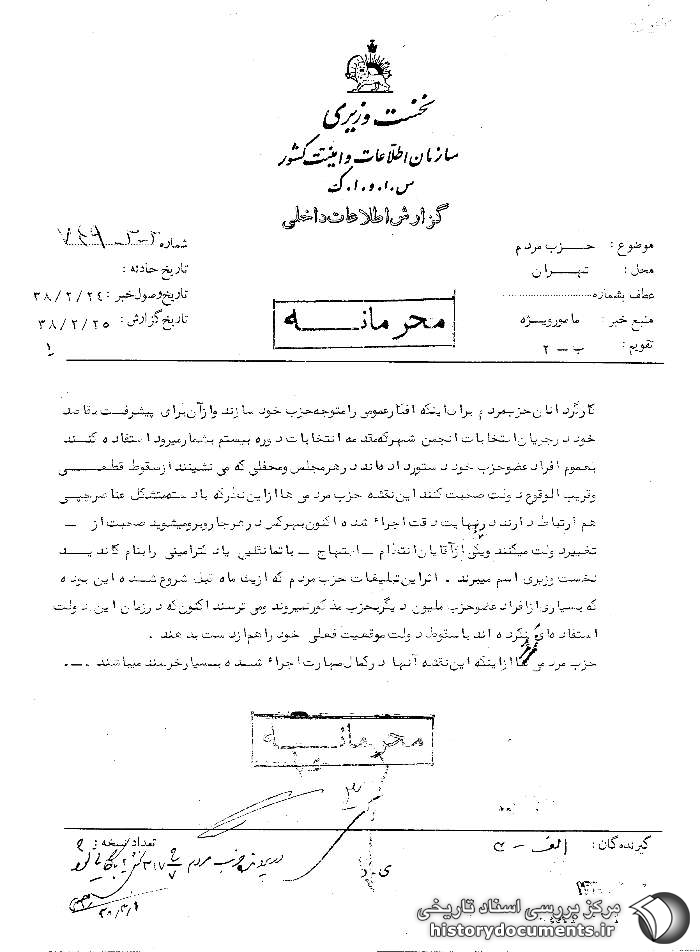 نخست وزیری
سازمان اطلاعات و امنیت کشور
س.ا.و.ا.ک
گزارش اطلاعات داخلی
موضوع : حزب مردم
محل : تهران
عطف بشماره
منبع خبر : مامور ویژه
تقویم : ب - ۲
شماره
تاریخ حادثه :
تاریخ وصول خبر : ۳۸/۲/۲۴
تاریخ گزارش : ۳۸/۲/۲۵
۱
محرمانه
کارگردانان حزب مردم برای اینکه افکار عمومی را متوجه حزب خود سازند و از آن برای پیشرفت مقاصد
خود در جریان انتخابات انجمن شهر که مقدمه انتخابات دوره بیستم بشمار میرود استفاده کنند
بعموم افراد عضو حزب خود دستور داده اند در هر مجلس و محفلی که می نشینند از سقوط قطعی
و قریب الوقوع دولت صحبت کنند این نقشه حزب مردمی ها از این نظر که با دستتشکل عناصر چپی
هم ارتباط دارند در نهایت دقت اجراء شده اکنون بهر کس در هر جا روبرو میشوید صحبت از -
تغییر دولت میکنند و یکی از آقایان انتظام - ابتهاج - یا تمانقلیی یا دکتر امینی را بنام کاندید
نخست وزیری اسم میبرند . اثر این تبلیغات حزب مردم که از یک ماه قبل شروع شده این بوده
که بسیاری از افراد عضو حزب ملیون دیگر بحزب مذکور نمیروند و می ترسند اکنون که در زمان این دولت
استفاده ای نکرده اند با سقوط دولت موقعیت فعلی خود را هم از دست بدهند .
حزب مردمی ها از اینکه این نقشه آنها در کمال مهارت اجراء شده بسیار خرسند میباشند .-.
محرمانه
گیرندگان : الف - ۳
تعداد نسخه :
در پرونده حزب مردم
۳۸/۳/۹
مرکز بررسی اسناد تاریخی
historydocuments.ir